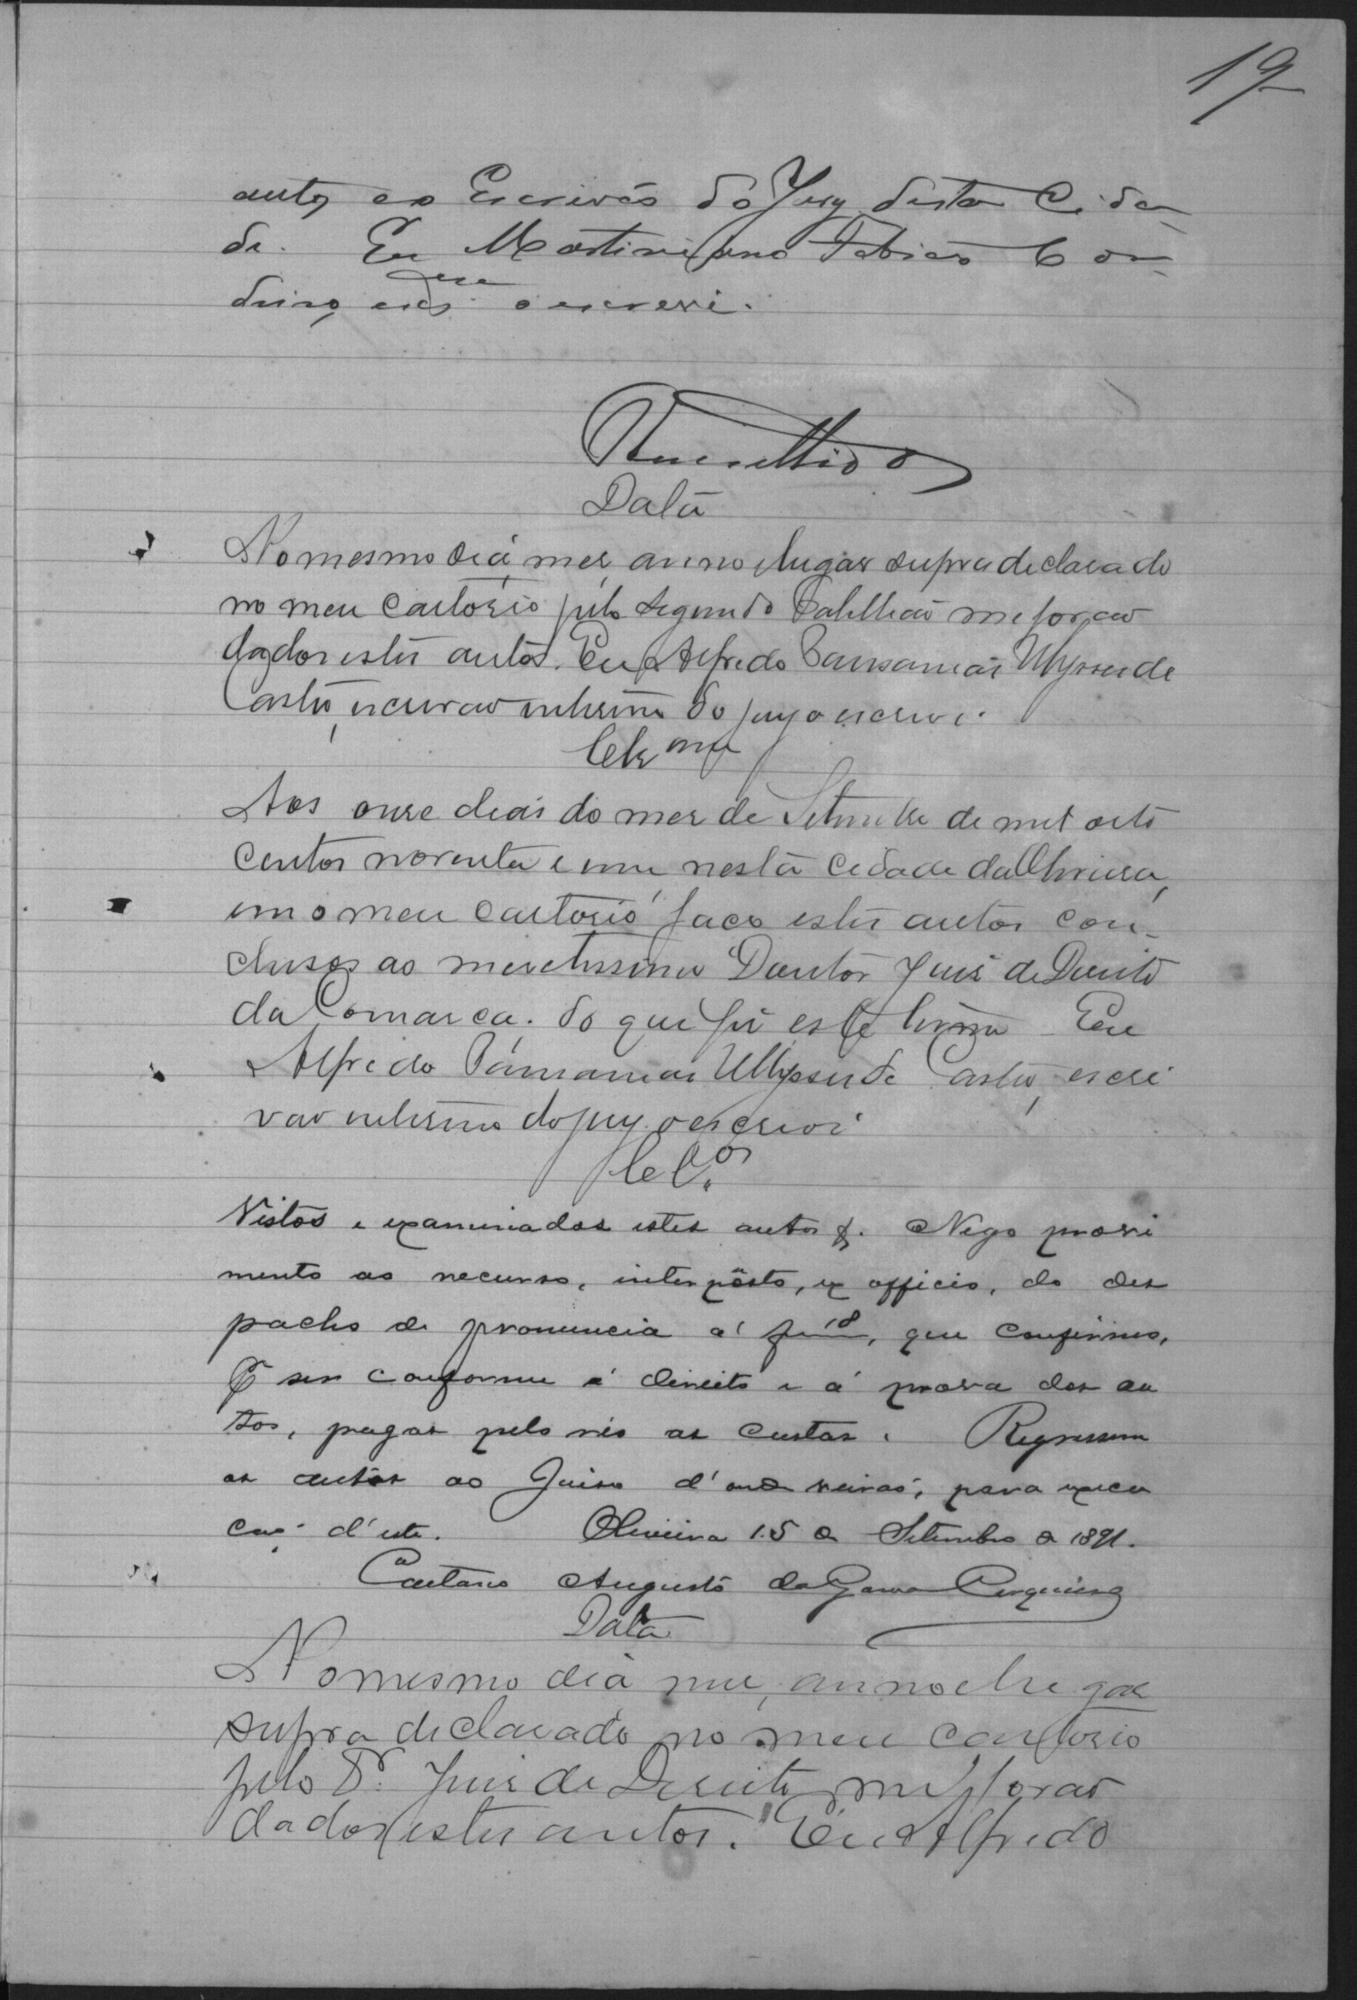 19
autos ao Escrivão do Jury desta Cida-
de. Eu Martiniano Fabião Con-
drino, que o escrevi.
Remettido
Data
No mesmo dia, mes, anno e lugar supra declarado
no meu cartorio pelo segundo Tabellião me forão
dados estes autos. Eu, Alfredo Pausanias Ulysses de
Castro, escrivão interino do jury o escrevi.
Clsam
Aos onze dias do mes de Setembro de mil oito
centos noventa e um nesta cidade da Oliveira,
em o meu cartorio faço estes autos con-
clusos ao meretissimo Doutor Juis de Direito
da Comarca. do que fis este termo. Eu
Alfredo Pausanias Ulysses de Castro, escri
vão interino do jury o escrevi
Clsos
Vistos e examinados estes autos &. Nego provi
mento ao recurso, interpôsto, ex officio, do des
pacho de pronuncia á f. 18, que confirmo,
por ser conforme á direito e á prova dos au
tos, pagas pelo réo as custas. Regressem
os autos ao Juiso d'onde vierão, para execu
ção d'este. Oliveira 15 de Setembro de 1891.
Caetano Augusto da Gama Cerqueira
Data
No mesmo dia mes, anno e lugar
supra declarado no meu cartorio
pelo Dr. Juis de Direito me forão
dados estes autos. Eu Alfredo